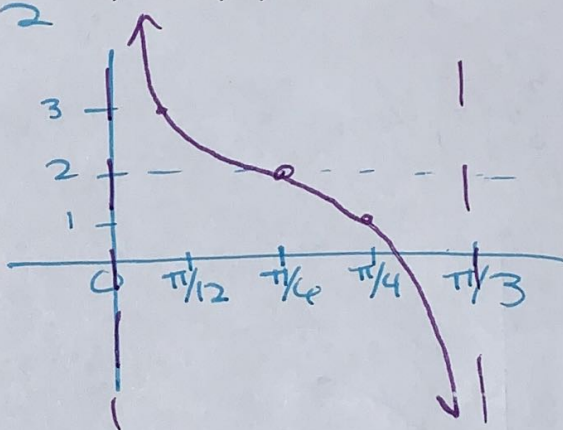 2
3
2
1
0 π/12 π/6 π/4 π/3